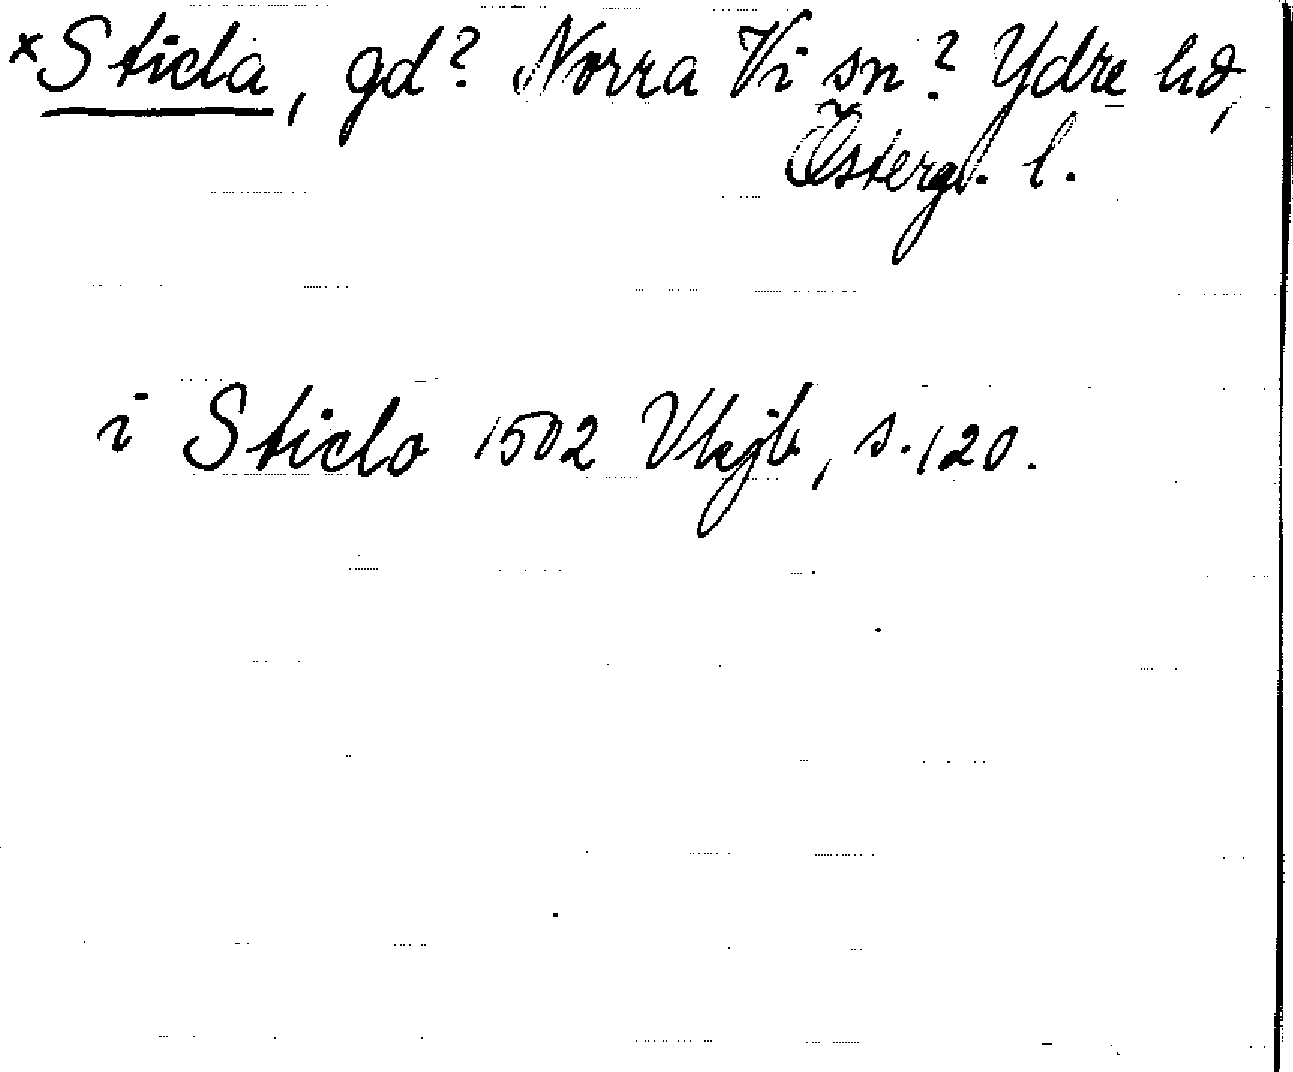 ×Sticla, gd? Norra Vi sn? Ydre hd,
Östergl. l.
i Sticlo 1502 Vkjb, s. 120.